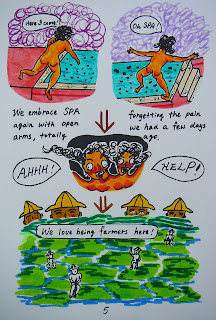 Here I come!
Oh SPA!
We embrace SPA
again with open
arms, totally
forgetting the pain
we had a few days
ago.
AHHH!
HELP!
We love being farmers here!
5